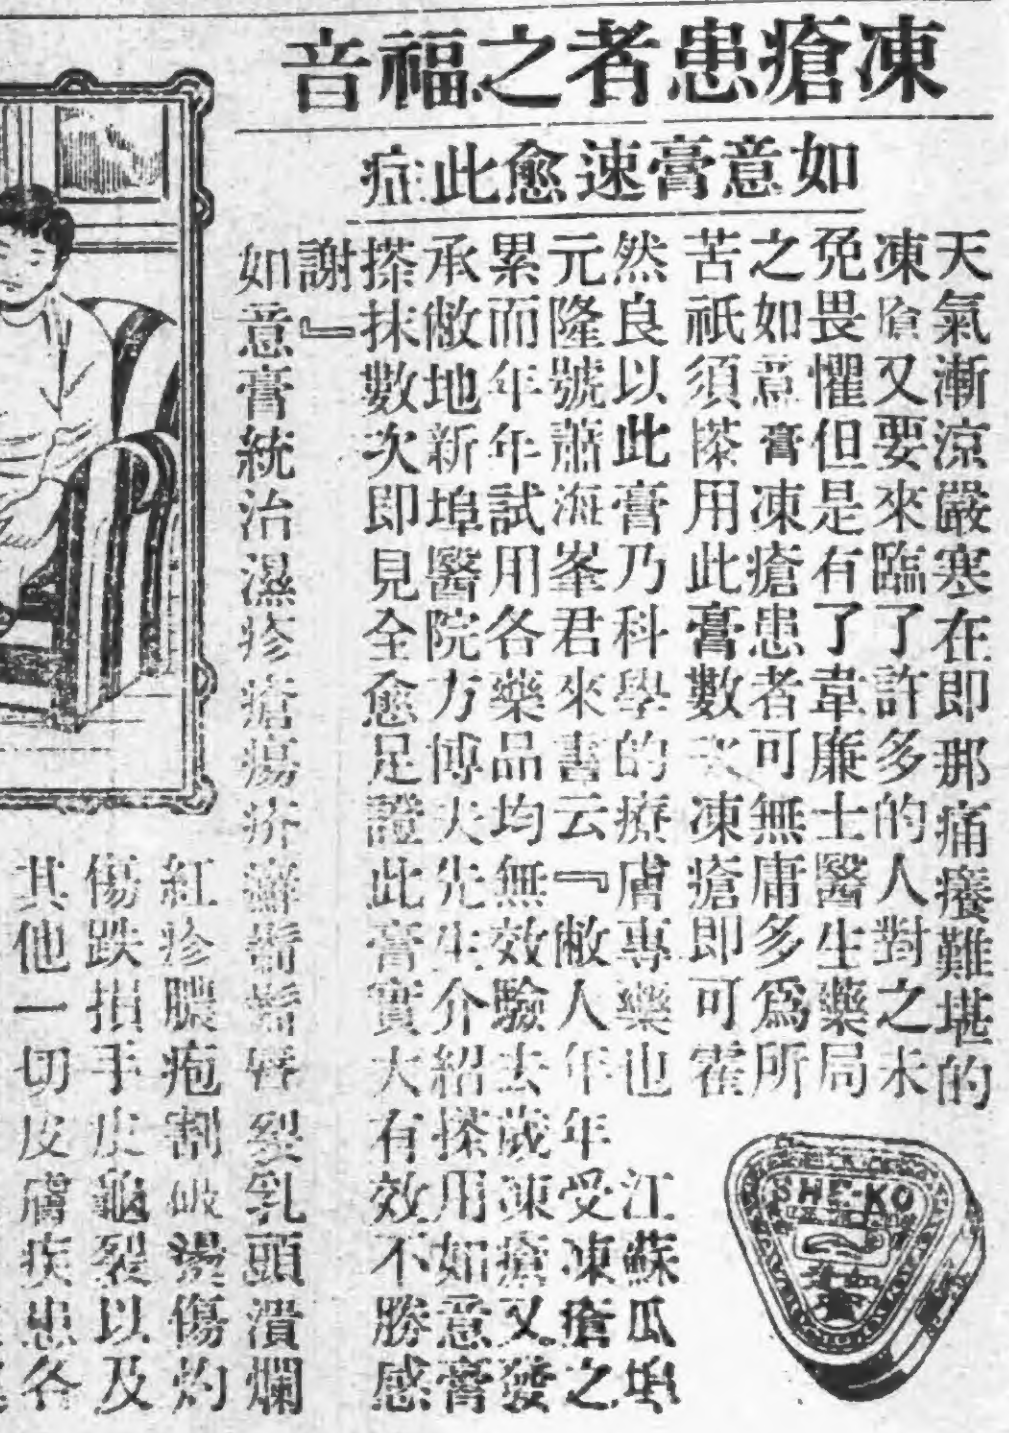 凍瘡患者之福音
如意膏速愈此症
天氣漸涼嚴寒在即那痛癢難堪的
凍瘡又要來臨了許多的人對之未
免畏懼但是有了韋廉士醫生藥局
之如意膏凍瘡患者可無庸多為所
苦祇須搽用此膏數次凍瘡即可霍
然良以此膏乃科學的療膚專藥也江蘇瓜埠
元隆號蕭海峯君來書云『敝人年年受凍瘡之
累而年年試用各藥品均無效驗去歲凍瘡又發
承敝地新埠醫院方傅夫先生介紹搽用如意膏
搽抹數次即見全愈足證此膏實大有效不勝感
謝』
如意膏統治濕疹瘡瘍疥癬唇裂乳頭潰爛
紅疹膿疱割破燙傷灼
傷跌損手皮龜裂以及
其他一切皮膚疾患各
SHE-KO
如意膏